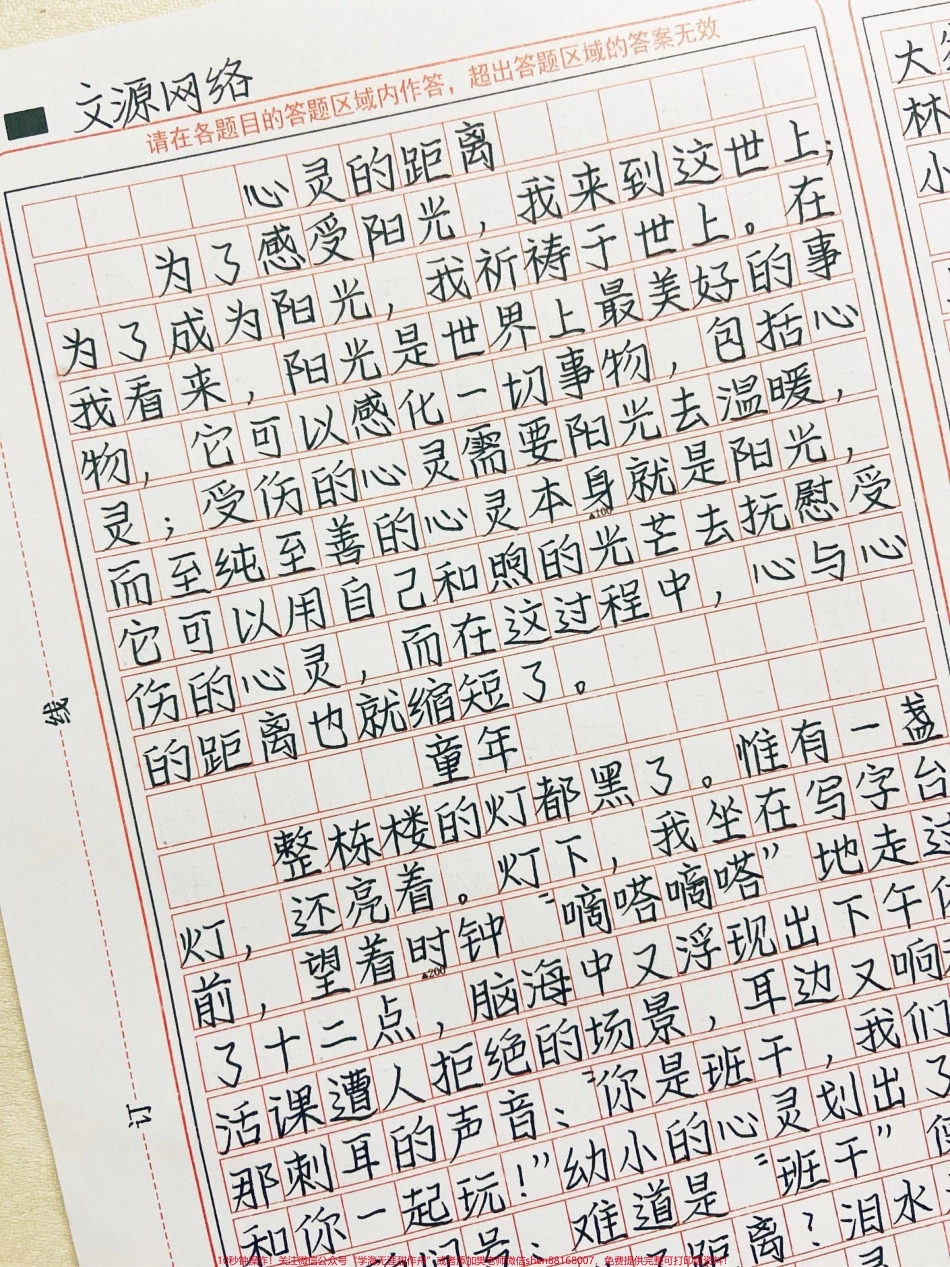 文源网络
请在各题目的答题区域内作答，超出答题区域的答案无效
心灵的距离
为了感受阳光，我来到这世上；
为了成为阳光，我祈祷于世上。在
我看来，阳光是世界上最美好的事
物，它可以感化一切事物，包括心
灵；受伤的心灵需要阳光去温暖，
而至纯至善的心灵本身就是阳光，
▲100
它可以用自己和煦的光芒去抚慰受
伤的心灵，而在这过程中，心与心
的距离也就缩短了。
童年
整栋楼的灯都黑了。惟有一盏
灯，还亮着。灯下，我坐在写字台
前，望着时钟“嘀嗒嘀嗒”地走过
▲200
了十二点，脑海中又浮现出下午
活课遭人拒绝的场景，耳边又响
那刺耳的声音：“你是班干，我们
和你一起玩！”幼小的心灵划出了
问号：难道是“班干”
距离？泪水
线
订
大
林
小